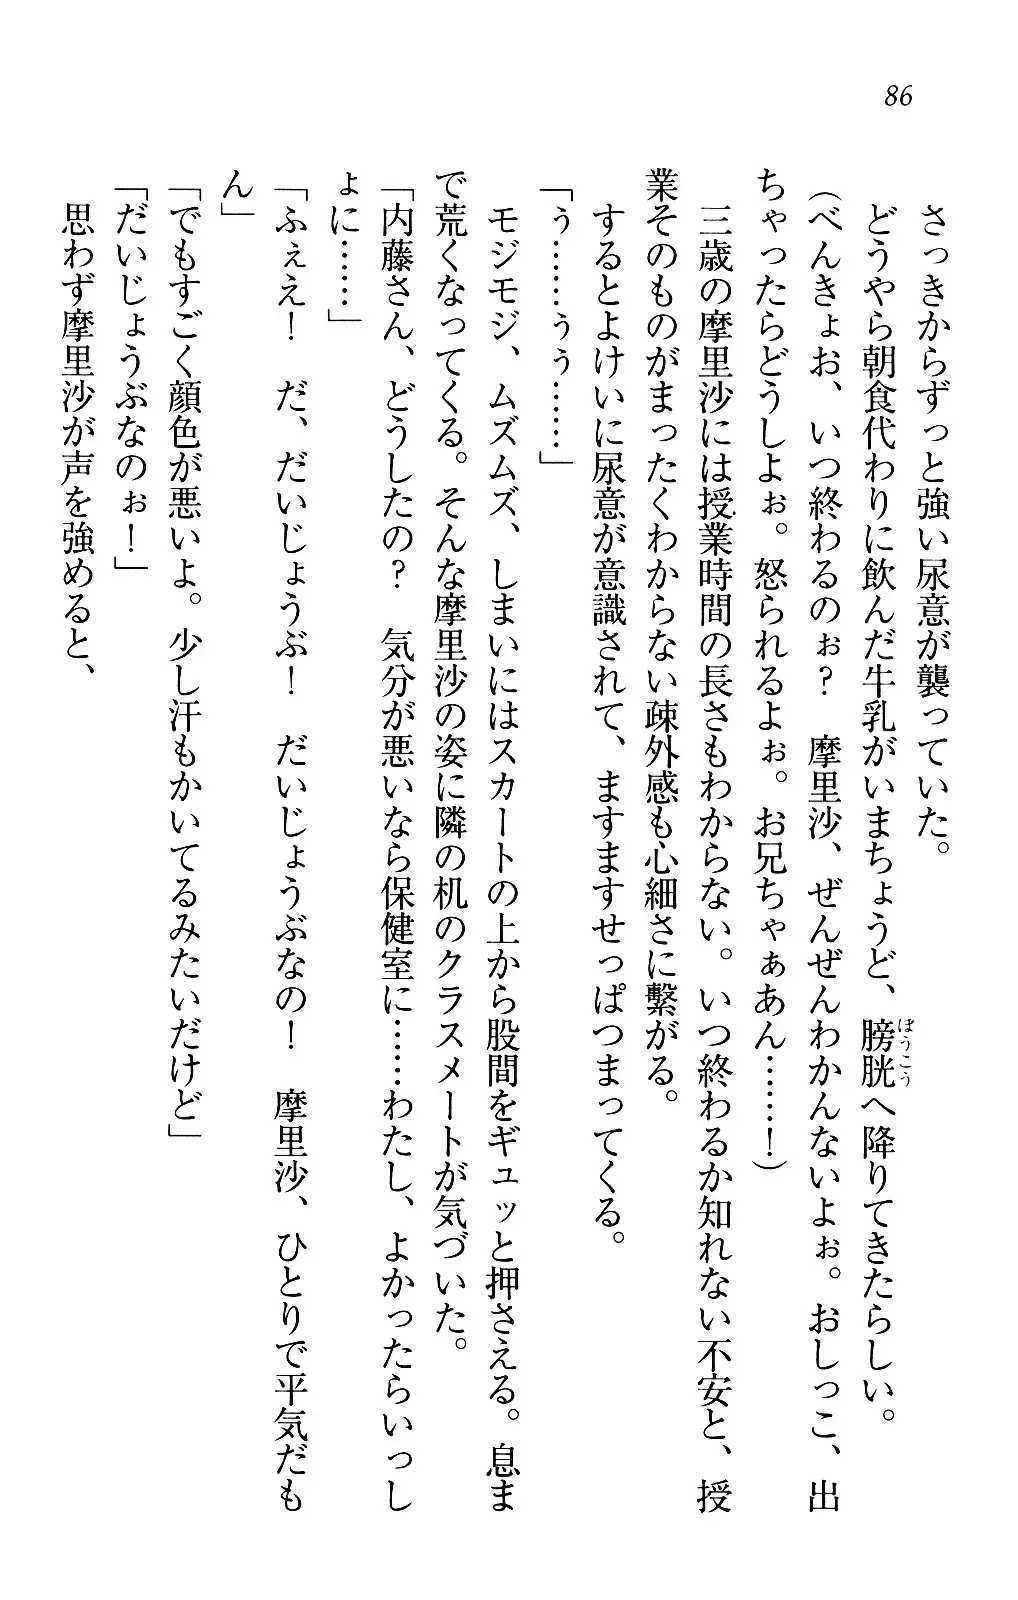 86
さっきからずっと強い尿意が襲っていた。
どうやら朝食代わりに飲んだ牛乳がいまちょうど、膀胱へ降りてきたらしい。
ぼうこう
（べんきょお、いつ終わるのぉ？　摩里沙、ぜんぜんわかんないよぉ。おしっこ、出
ちゃったらどうしよぉ。怒られるよぉ。お兄ちゃぁあん……！）
三歳の摩里沙には授業時間の長さもわからない。いつ終わるか知れない不安と、授
業そのものがまったくわからない疎外感も心細さに繋がる。
するとよけいに尿意が意識されて、ますますせっぱつまってくる。
「う……ぅぅ……」
モジモジ、ムズムズ、しまいにはスカートの上から股間をギュッと押さえる。息ま
で荒くなってくる。そんな摩里沙の姿に隣の机のクラスメートが気づいた。
「内藤さん、どうしたの？　気分が悪いなら保健室に……わたし、よかったらいっし
ょに……」
「ふぇえ！　だ、だいじょうぶ！　だいじょうぶなの！　摩里沙、ひとりで平気だも
ん」
「でもすごく顔色が悪いよ。少し汗もかいてるみたいだけど」
「だいじょうぶなのぉ！」
思わず摩里沙が声を強めると、